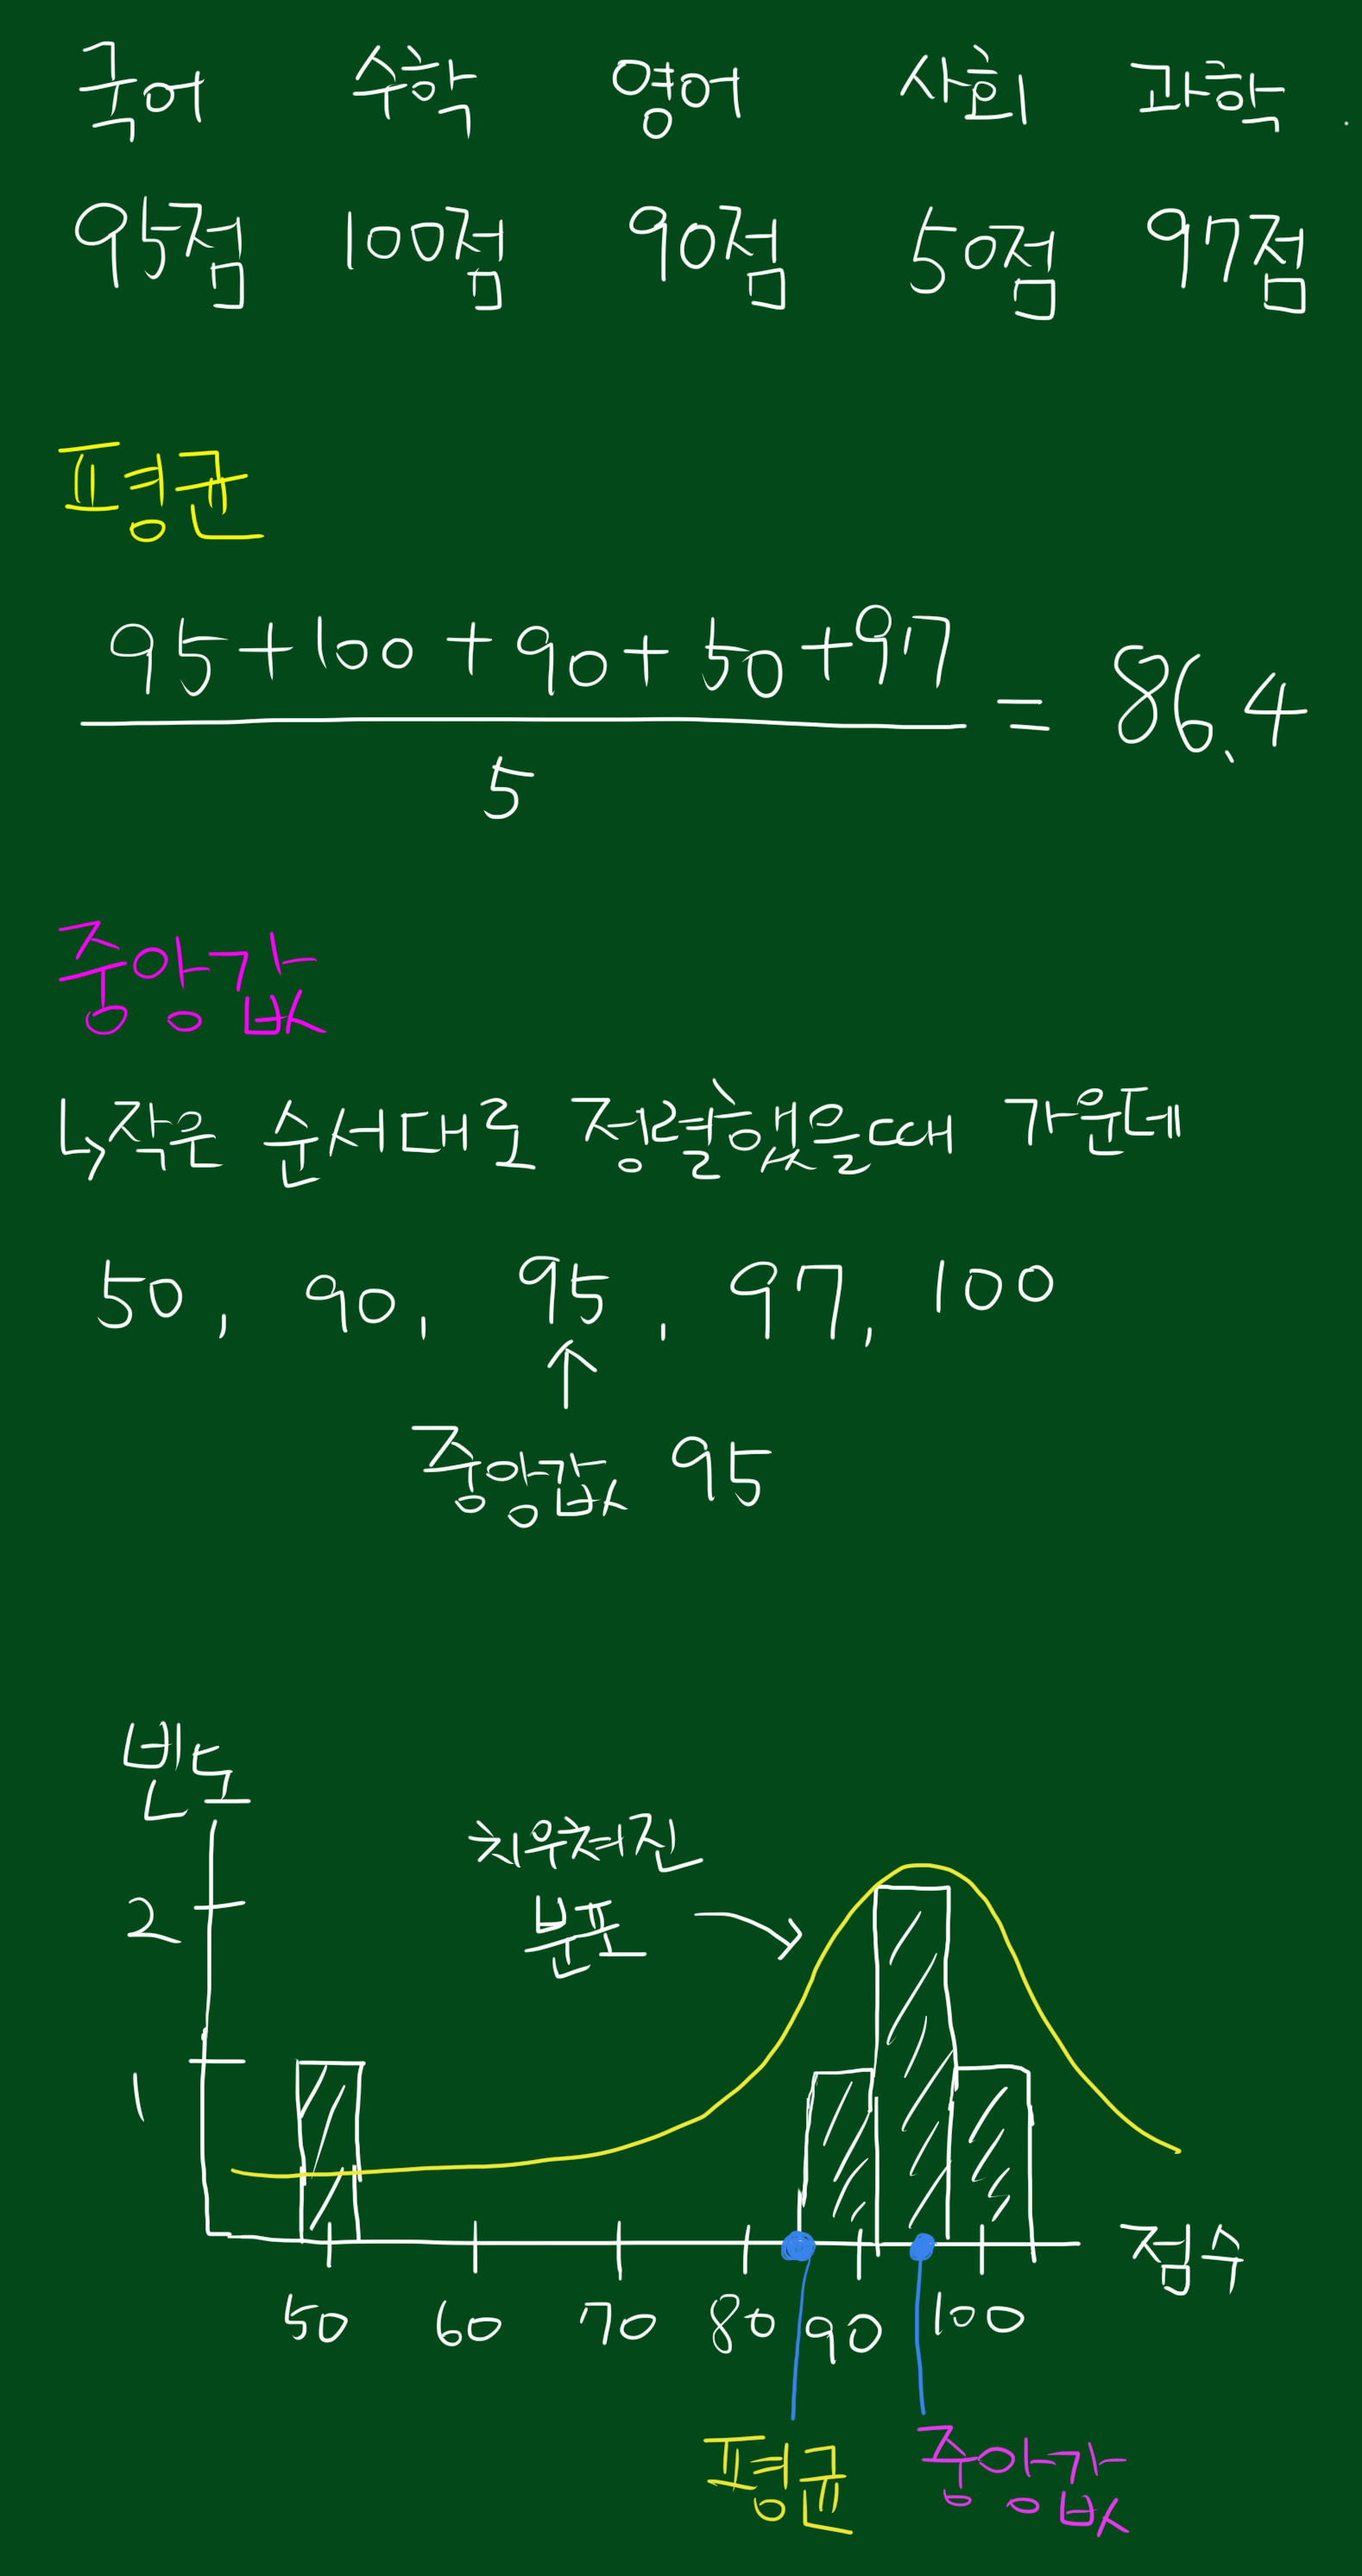 국어 수학 영어 사회 과학
95점 100점 90점 50점 97점
평균
95+100+90+50+97
5
= 86.4
중앙값
↳작은 순서대로 정렬했을때 가운데
50, 90, 95, 97, 100
↑
중앙값 95
빈도
치우쳐진
분포
2
1
50 60 70 80 90 100
점수
평균 중앙값